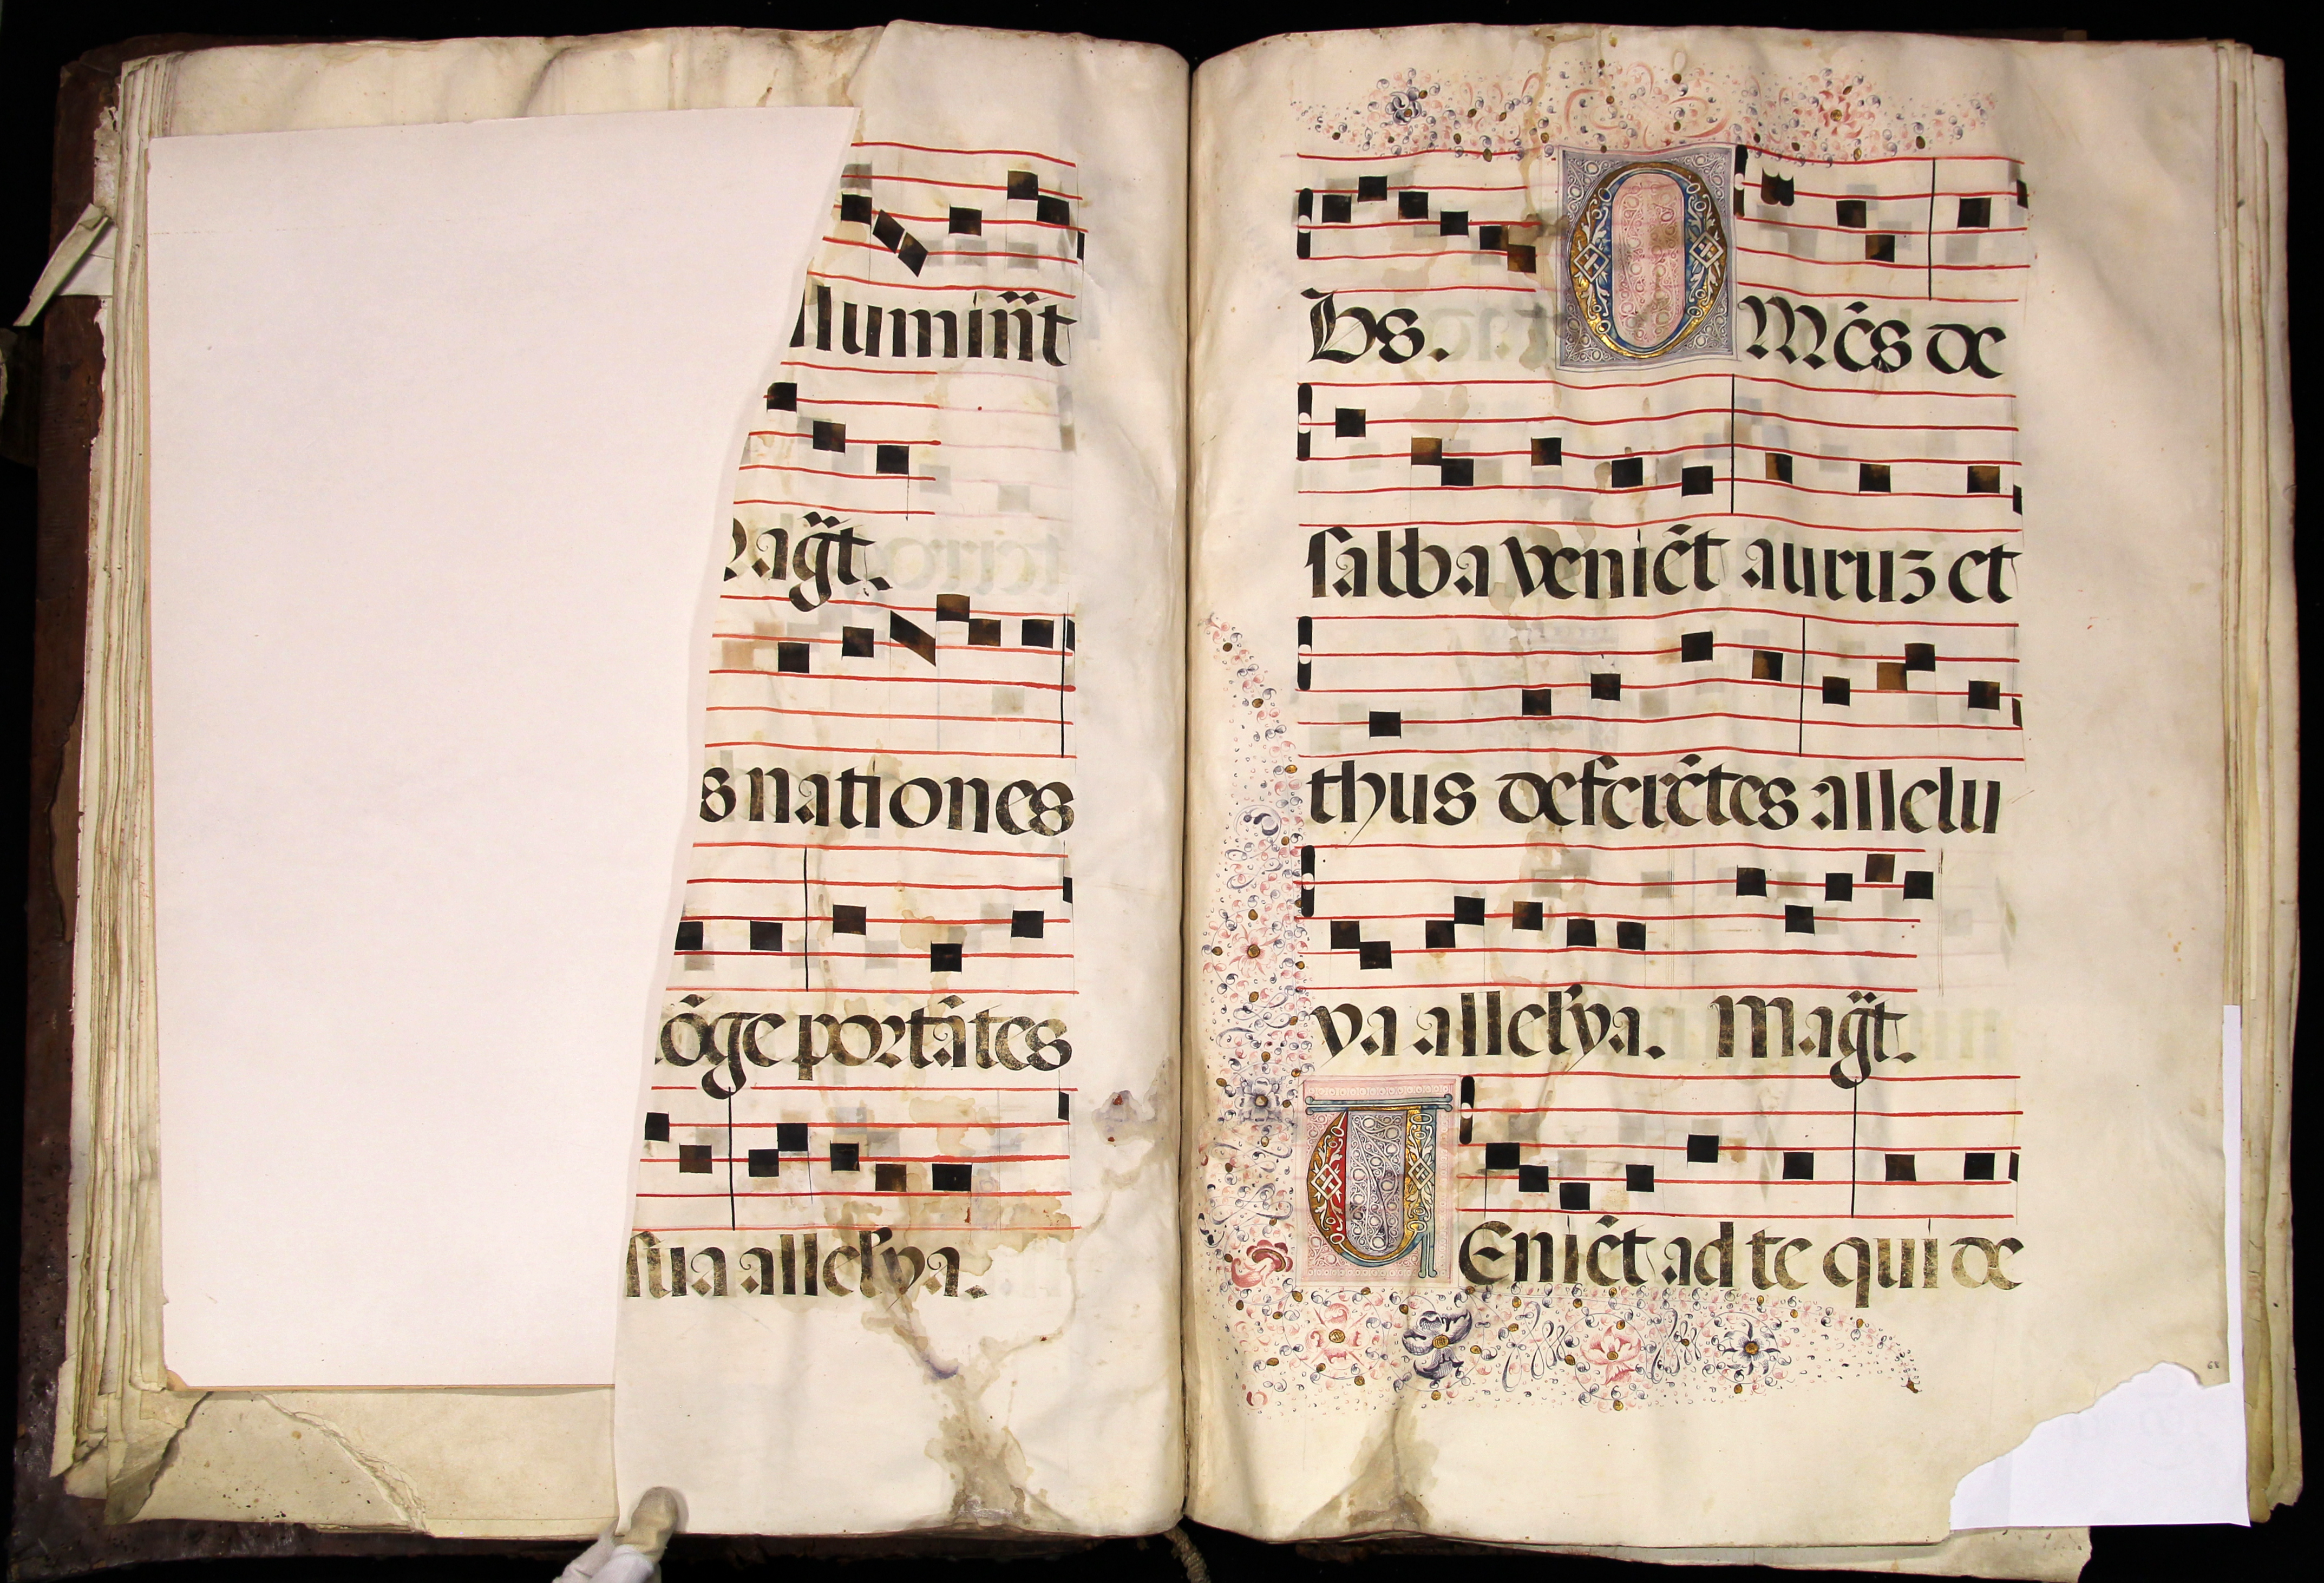 lumin̄t
Mag̃t.
s nationes
lõge portãtes
sua allel'ya.
bs. OMẽs de
salba veniẽt auruȝ et
thus deferẽtes allelu
ya allel'ya. Mag̃t.
UEniẽt ad te qui de